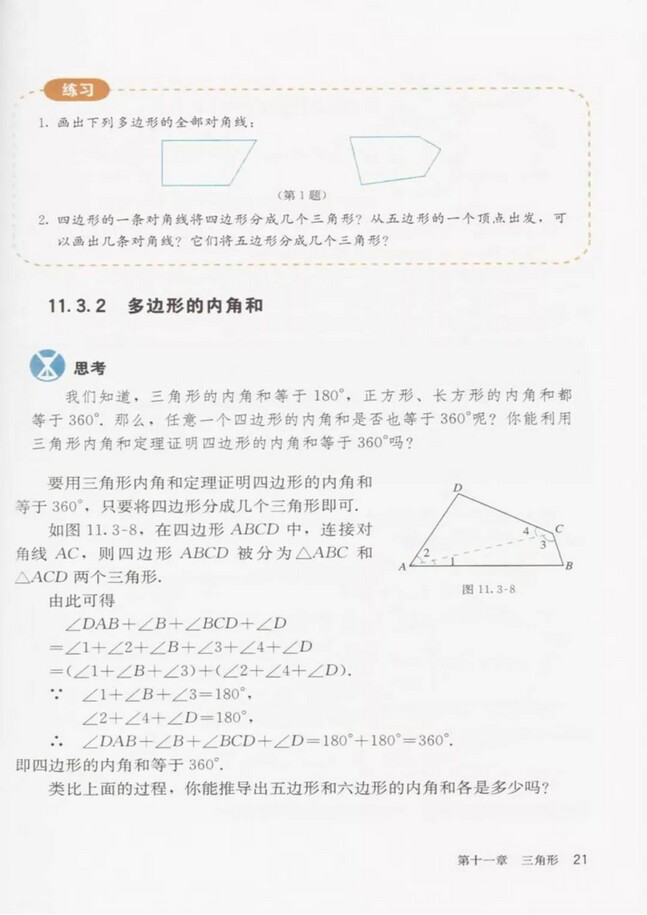 练习
1. 画出下列多边形的全部对角线：
（第 1 题）
2. 四边形的一条对角线将四边形分成几个三角形？从五边形的一个顶点出发，可
以画出几条对角线？它们将五边形分成几个三角形？
11.3.2 多边形的内角和
思考
我们知道，三角形的内角和等于 180°，正方形、长方形的内角和都
等于 360°．那么，任意一个四边形的内角和是否也等于 360°呢？你能利用
三角形内角和定理证明四边形的内角和等于 360°吗？
要用三角形内角和定理证明四边形的内角和
等于 360°，只要将四边形分成几个三角形即可．
如图 11.3-8，在四边形 ABCD 中，连接对
角线 AC，则四边形 ABCD 被分为△ABC 和
△ACD 两个三角形．
D
4 C
3
2
A 1 B
图 11.3-8
由此可得
∠DAB+∠B+∠BCD+∠D
=∠1+∠2+∠B+∠3+∠4+∠D
=(∠1+∠B+∠3)+(∠2+∠4+∠D).
∵ ∠1+∠B+∠3=180°，
∠2+∠4+∠D=180°，
∴ ∠DAB+∠B+∠BCD+∠D=180°+180°=360°．
即四边形的内角和等于 360°．
类比上面的过程，你能推导出五边形和六边形的内角和各是多少吗？
第十一章 三角形 21